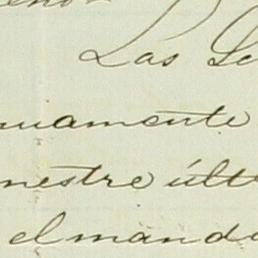 Las Se
uamente
mestre últ
el manda